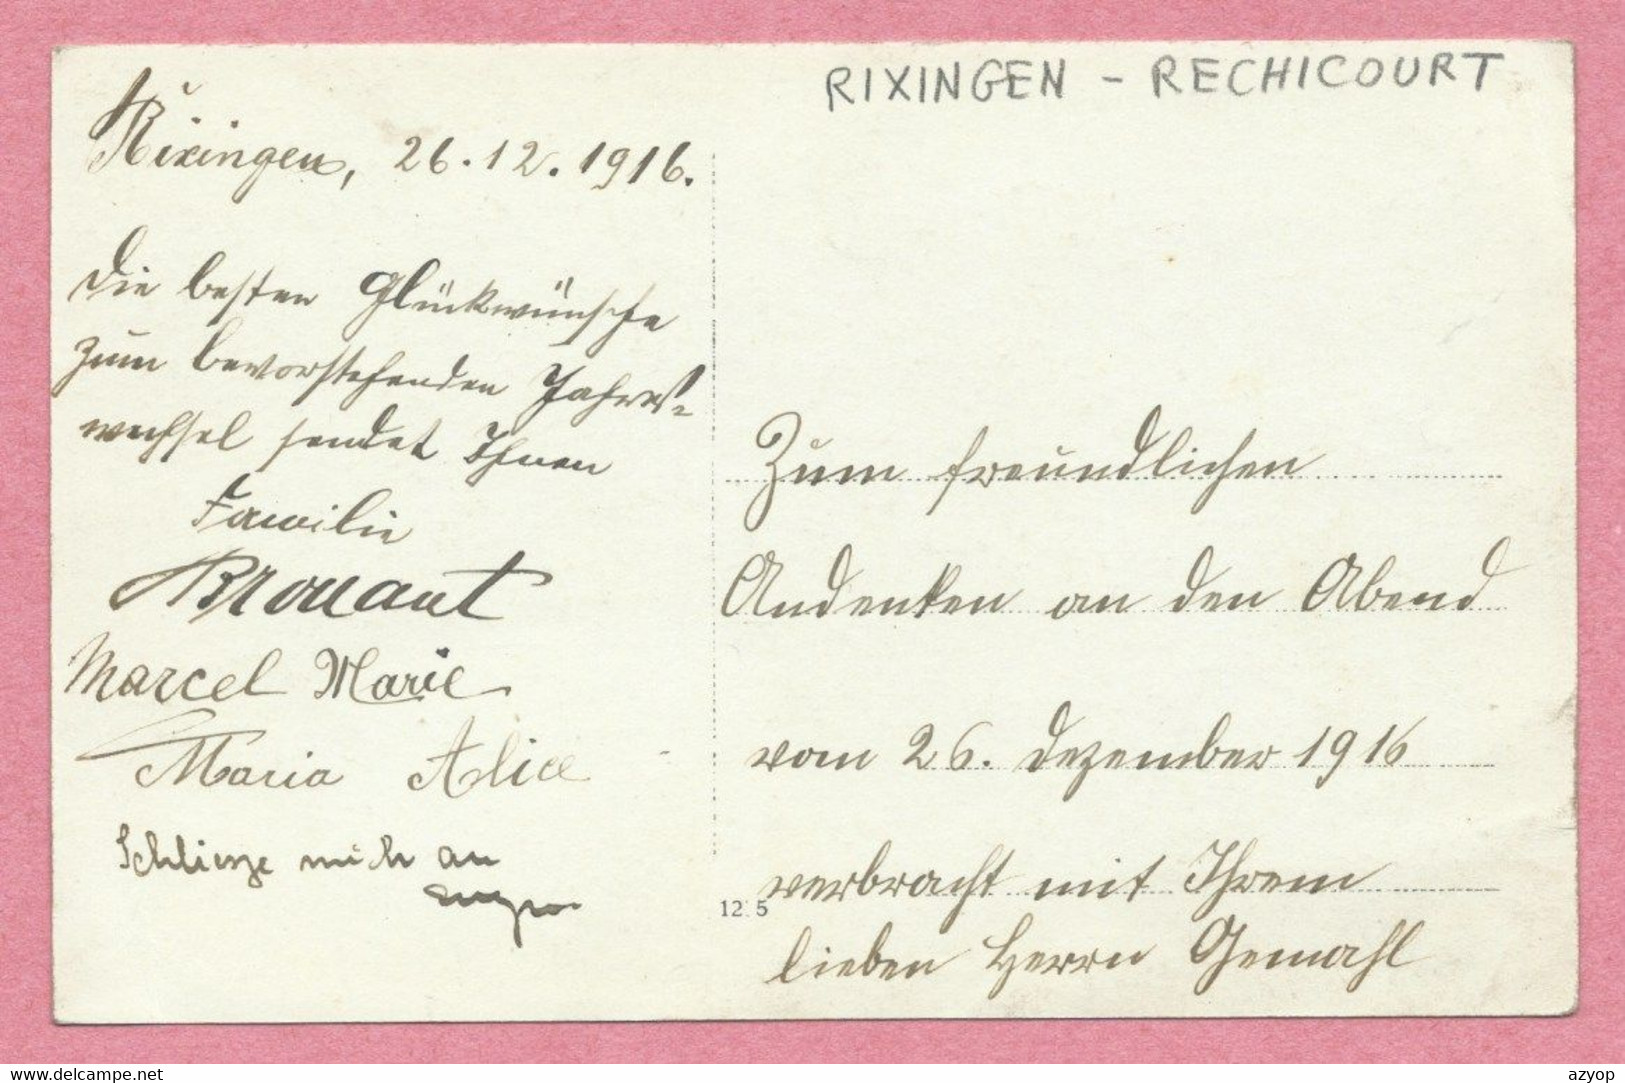 RIXINGEN - RECHICOURT
Rixingen, 26.12.1916.
Die besten Glückwünsche
zum bevorstehenden Jahres-
wechsel sendet Ihnen
Familie
Brouant
Marcel Marie
Maria Alice
Schliesze mich an
Zum freundlichen
Andenken an den Abend
vom 26. Dezember 1916
verbracht mit Ihrem
lieben Herrn Gemahl
12 5
www.delcampe.net
azyop